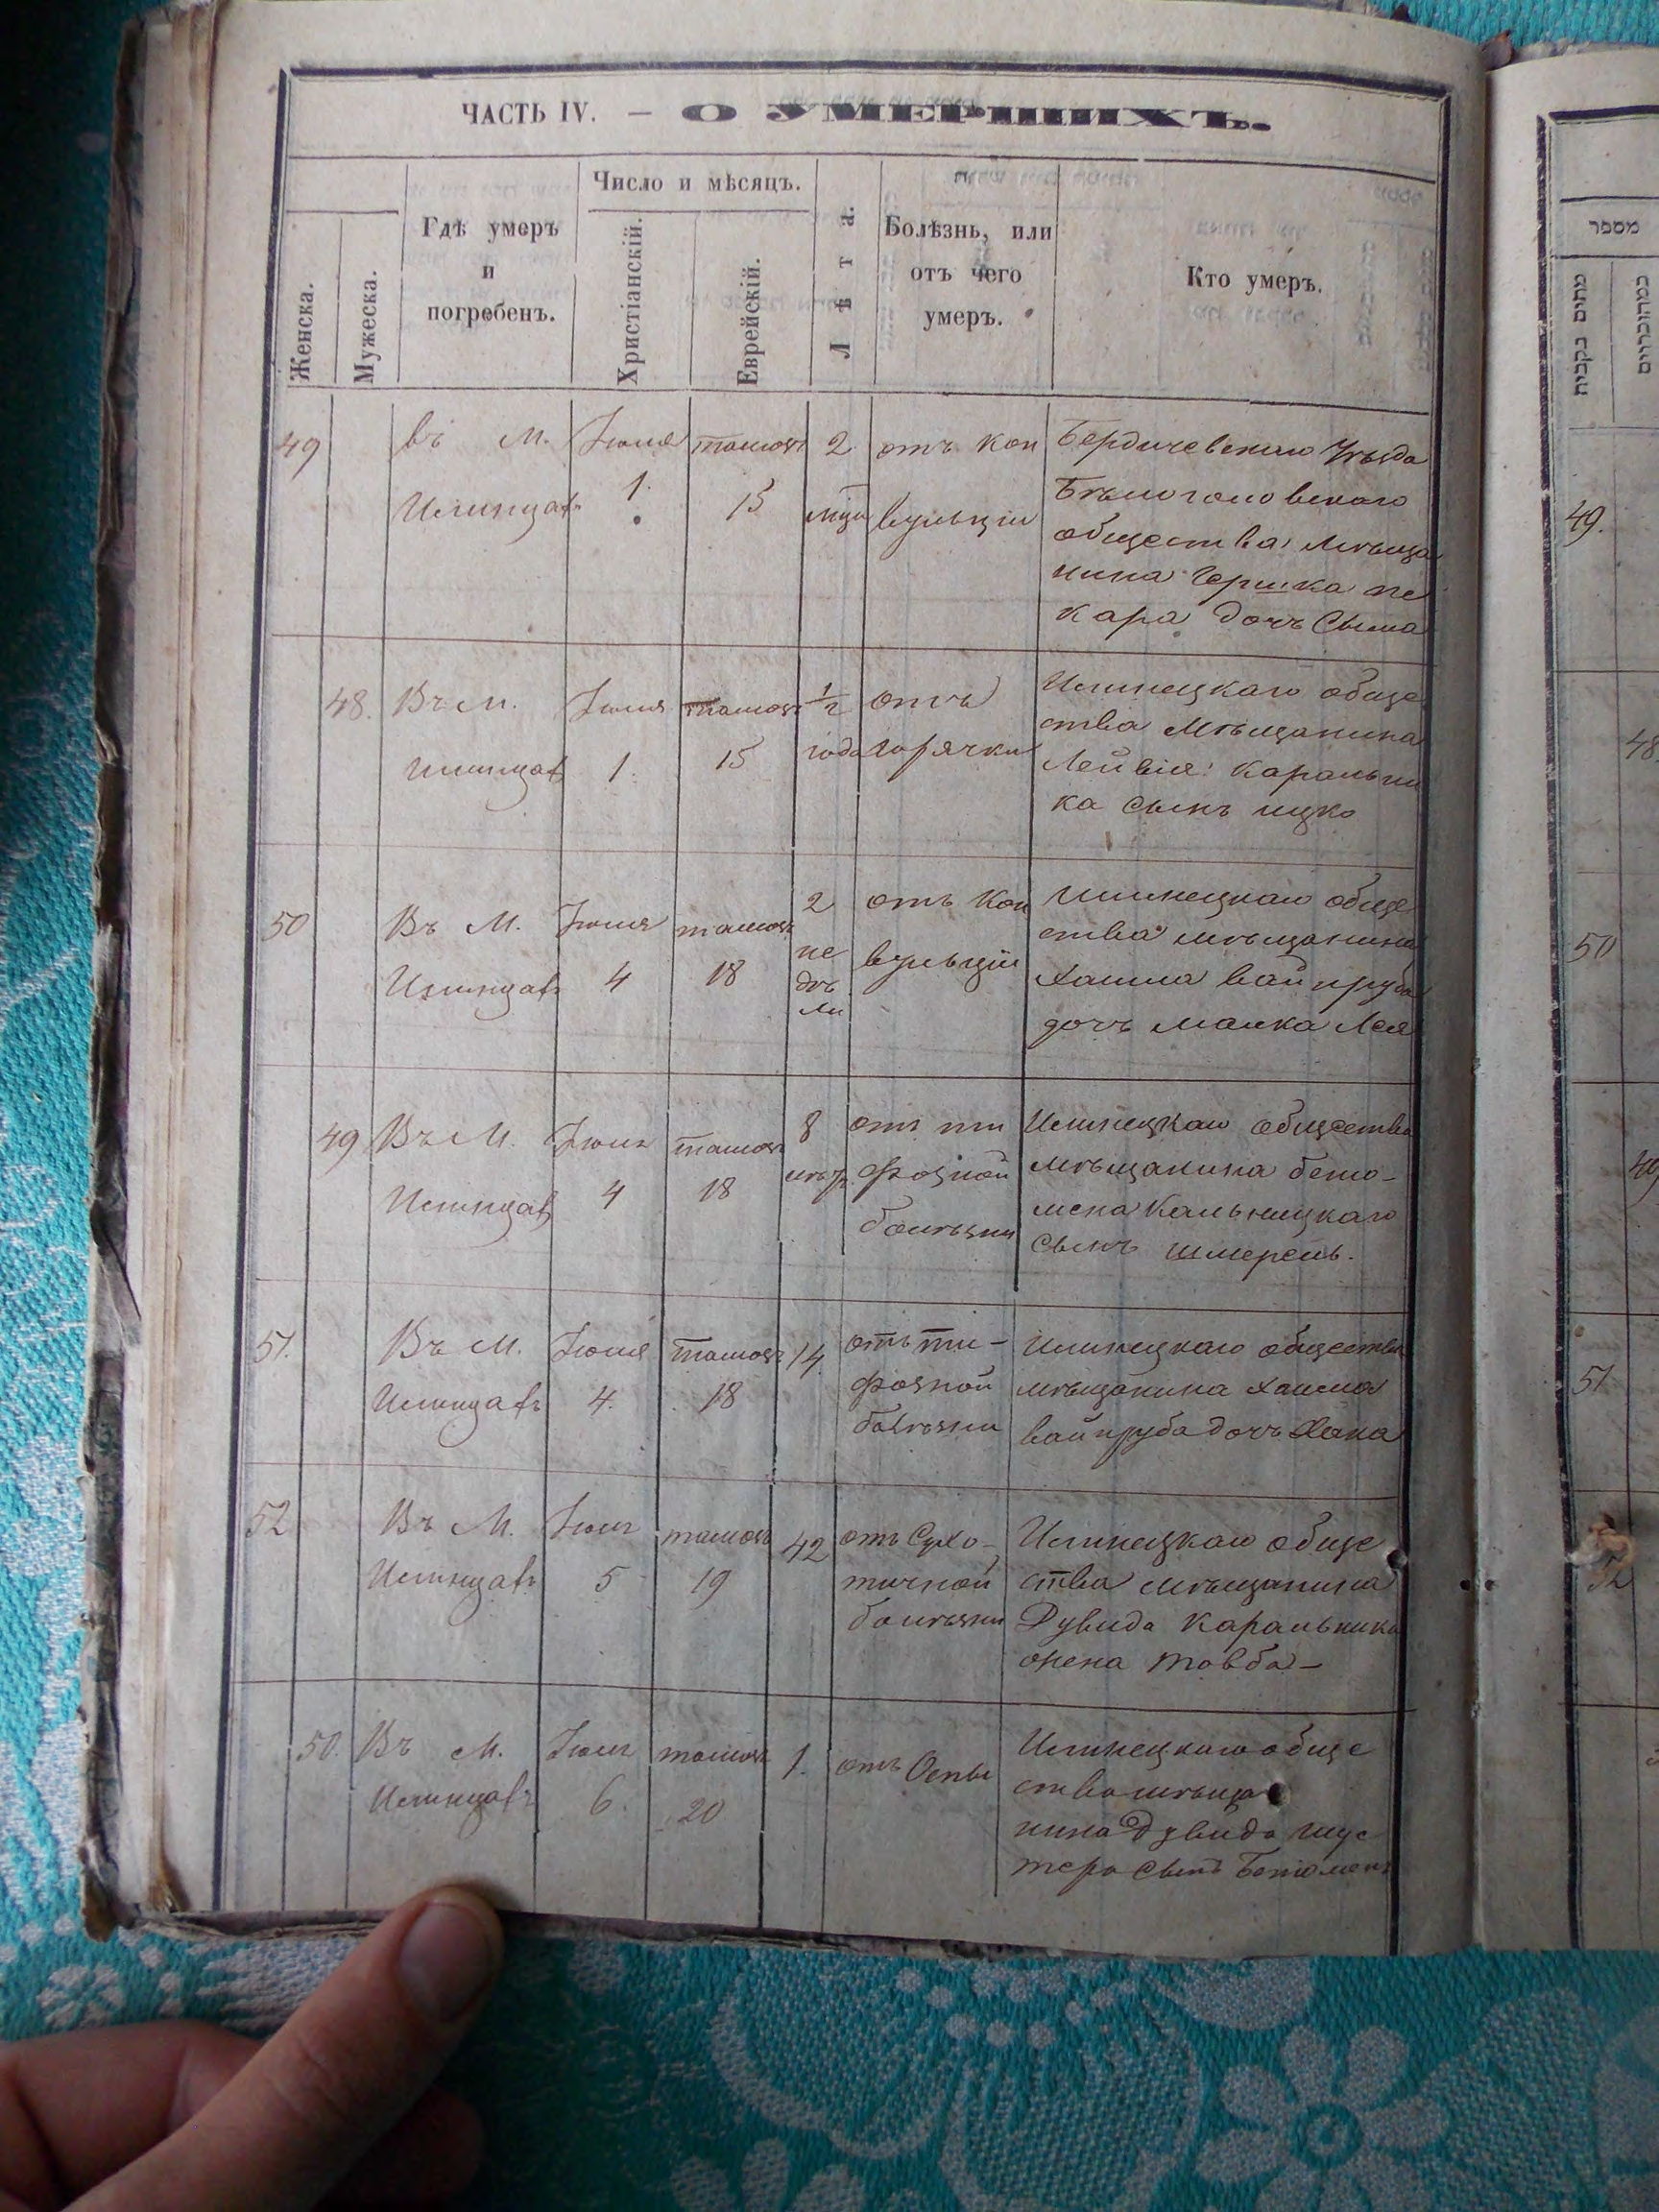 ЧАСТЬ IV. — О УМЕРШИХЪ.
Женска.
Мужеска.
Гдѣ умеръ
и
погребенъ.
Число и мѣсяцъ.
Христіанскій.
Еврейскій.
Лѣта.
Болѣзнь, или
отъ чего
умеръ.
Кто умеръ.
49
въ М.
Илинцахъ
Іюля
1.
тамозъ
15
2
мцы
отъ кон
вульціи
Бердичевского Уѣзда
общества мѣща
нина Гершка пе
кара дочъ Сима
48.
Въ М.
Илинцахъ
Іюля
1.
тамозъ
15
1/2
года
отъ
горячки
Илинецкаго обще
ства мѣщанина
Лейвія Каральни
ка сынъ ицко
50
Въ М.
Илинцахъ
Іюля
4
тамозъ
18
2
не
дѣ
ли
отъ Кон
вульціи
Илинецкаго обще
ства мѣщанина
Хаима вайнруба
дочъ малка Лея
49
Въ М.
Илинцахъ
Іюля
4
тамозъ
18
8
мѣ.
отъ ти
фозной
болѣзни
Илинецкаго общества
мѣщанина беню-
мена Кальницкаго
сынъ шмерель.
51.
Въ М.
Илинцахъ
Іюля
4.
тамозъ
18
14.
отъ ти-
фозной
болѣзни
Илинецкаго общества
мѣщанина Хаима
вайнруба дочъ Хана
52
Въ М.
Илинцахъ
Іюля
5
тамозъ
19
42
отъ Сухо-
тичной
болѣзни
Илинецкаго обще
ства мѣщанина
Дувида Каральника
жена товба-
50.
Въ М.
Илинцахъ
Іюля
6.
тамозъ
20
1.
отъ Оспы
Илинецкаго обще
ства мѣща
нина Дувида шус
тера сынъ Бенюменъ
מספר
49.
48.
50
49
51
52